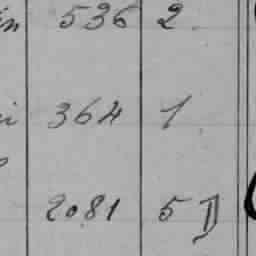 in 536 2
i 364 1
2081 5 D